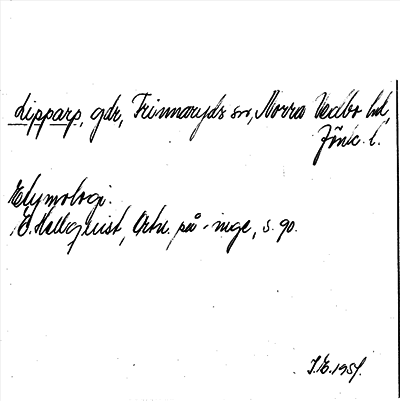 Lipparp, gdr, Frinnaryds sn, Norra Vedbo hd,
Jönk. l.
Etymologi:
E. Hellquist, Ortn. på -inge, s. 90.
J.E. 1951.